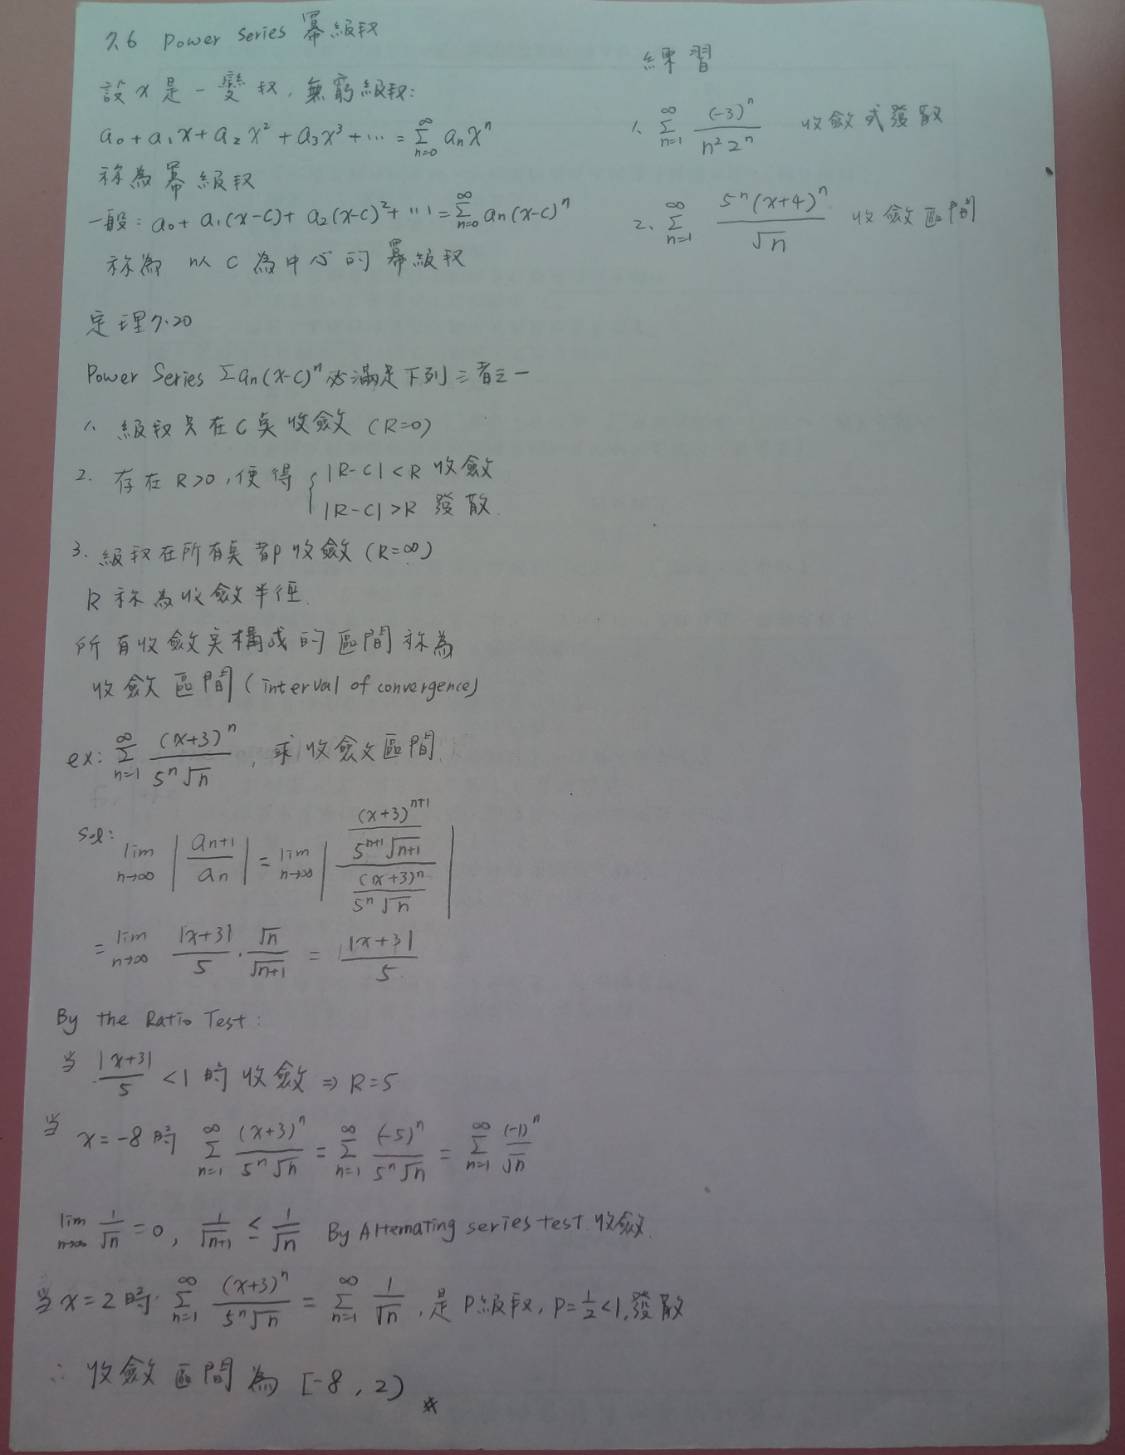 7.6 Power Series 冪級枚
設 x 是一變枚, 無窮級枚:
a₀ + a₁x + a₂x² + a₃x³ + ⋯ = ∑_{n=0}^{∞} aₙxⁿ
称為冪級枚
一般: a₀ + a₁(x-c) + a₂(x-c)² + ⋯ = ∑_{n=0}^{∞} aₙ(x-c)ⁿ
称為 以 C 為中心的冪級枚
定理7.20
Power Series ∑aₙ(x-c)ⁿ 必滿足下列三者之一
1. 級枚只在C奌收斂 (R=0)
2. 存在 R>0, 使得 { |R-C|<R 收斂
|R-C|>R 發散.
3. 級枚在所有奌都收斂 (R=∞)
R 称為收斂半徑.
所有收斂奌構成的區間称為
收斂區間 (interval of convergence)
ex: ∑_{n=1}^{∞} (x+3)ⁿ/(5ⁿ√n), 求收斂區間.
sol: lim_{n→∞} |aₙ₊₁/aₙ| = lim_{n→∞} |((x+3)ⁿ⁺¹/(5ⁿ⁺¹√(n+1)))/((x+3)ⁿ/(5ⁿ√n))|
= lim_{n→∞} |x+3|/5 · √n/√(n+1) = |x+3|/5
By the Ratio Test:
当 |x+3|/5 <1 時收斂 ⇒ R=5
当 x=-8 時 ∑_{n=1}^{∞} (x+3)ⁿ/(5ⁿ√n) = ∑_{n=1}^{∞} (-5)ⁿ/(5ⁿ√n) = ∑_{n=1}^{∞} (-1)ⁿ/√n
lim_{n→∞} 1/√n = 0, 1/√(n+1) ≤ 1/√n By Alternating series test 收斂.
当 x=2 時 ∑_{n=1}^{∞} (x+3)ⁿ/(5ⁿ√n) = ∑_{n=1}^{∞} 1/√n, 是 P級枚, P=1/2<1, 發散
∴ 收斂區間為 [-8, 2) ※
練習
1. ∑_{n=1}^{∞} (-3)ⁿ/(n²2ⁿ) 收斂或發散
2. ∑_{n=1}^{∞} 5ⁿ(x+4)ⁿ/√n 收斂區間